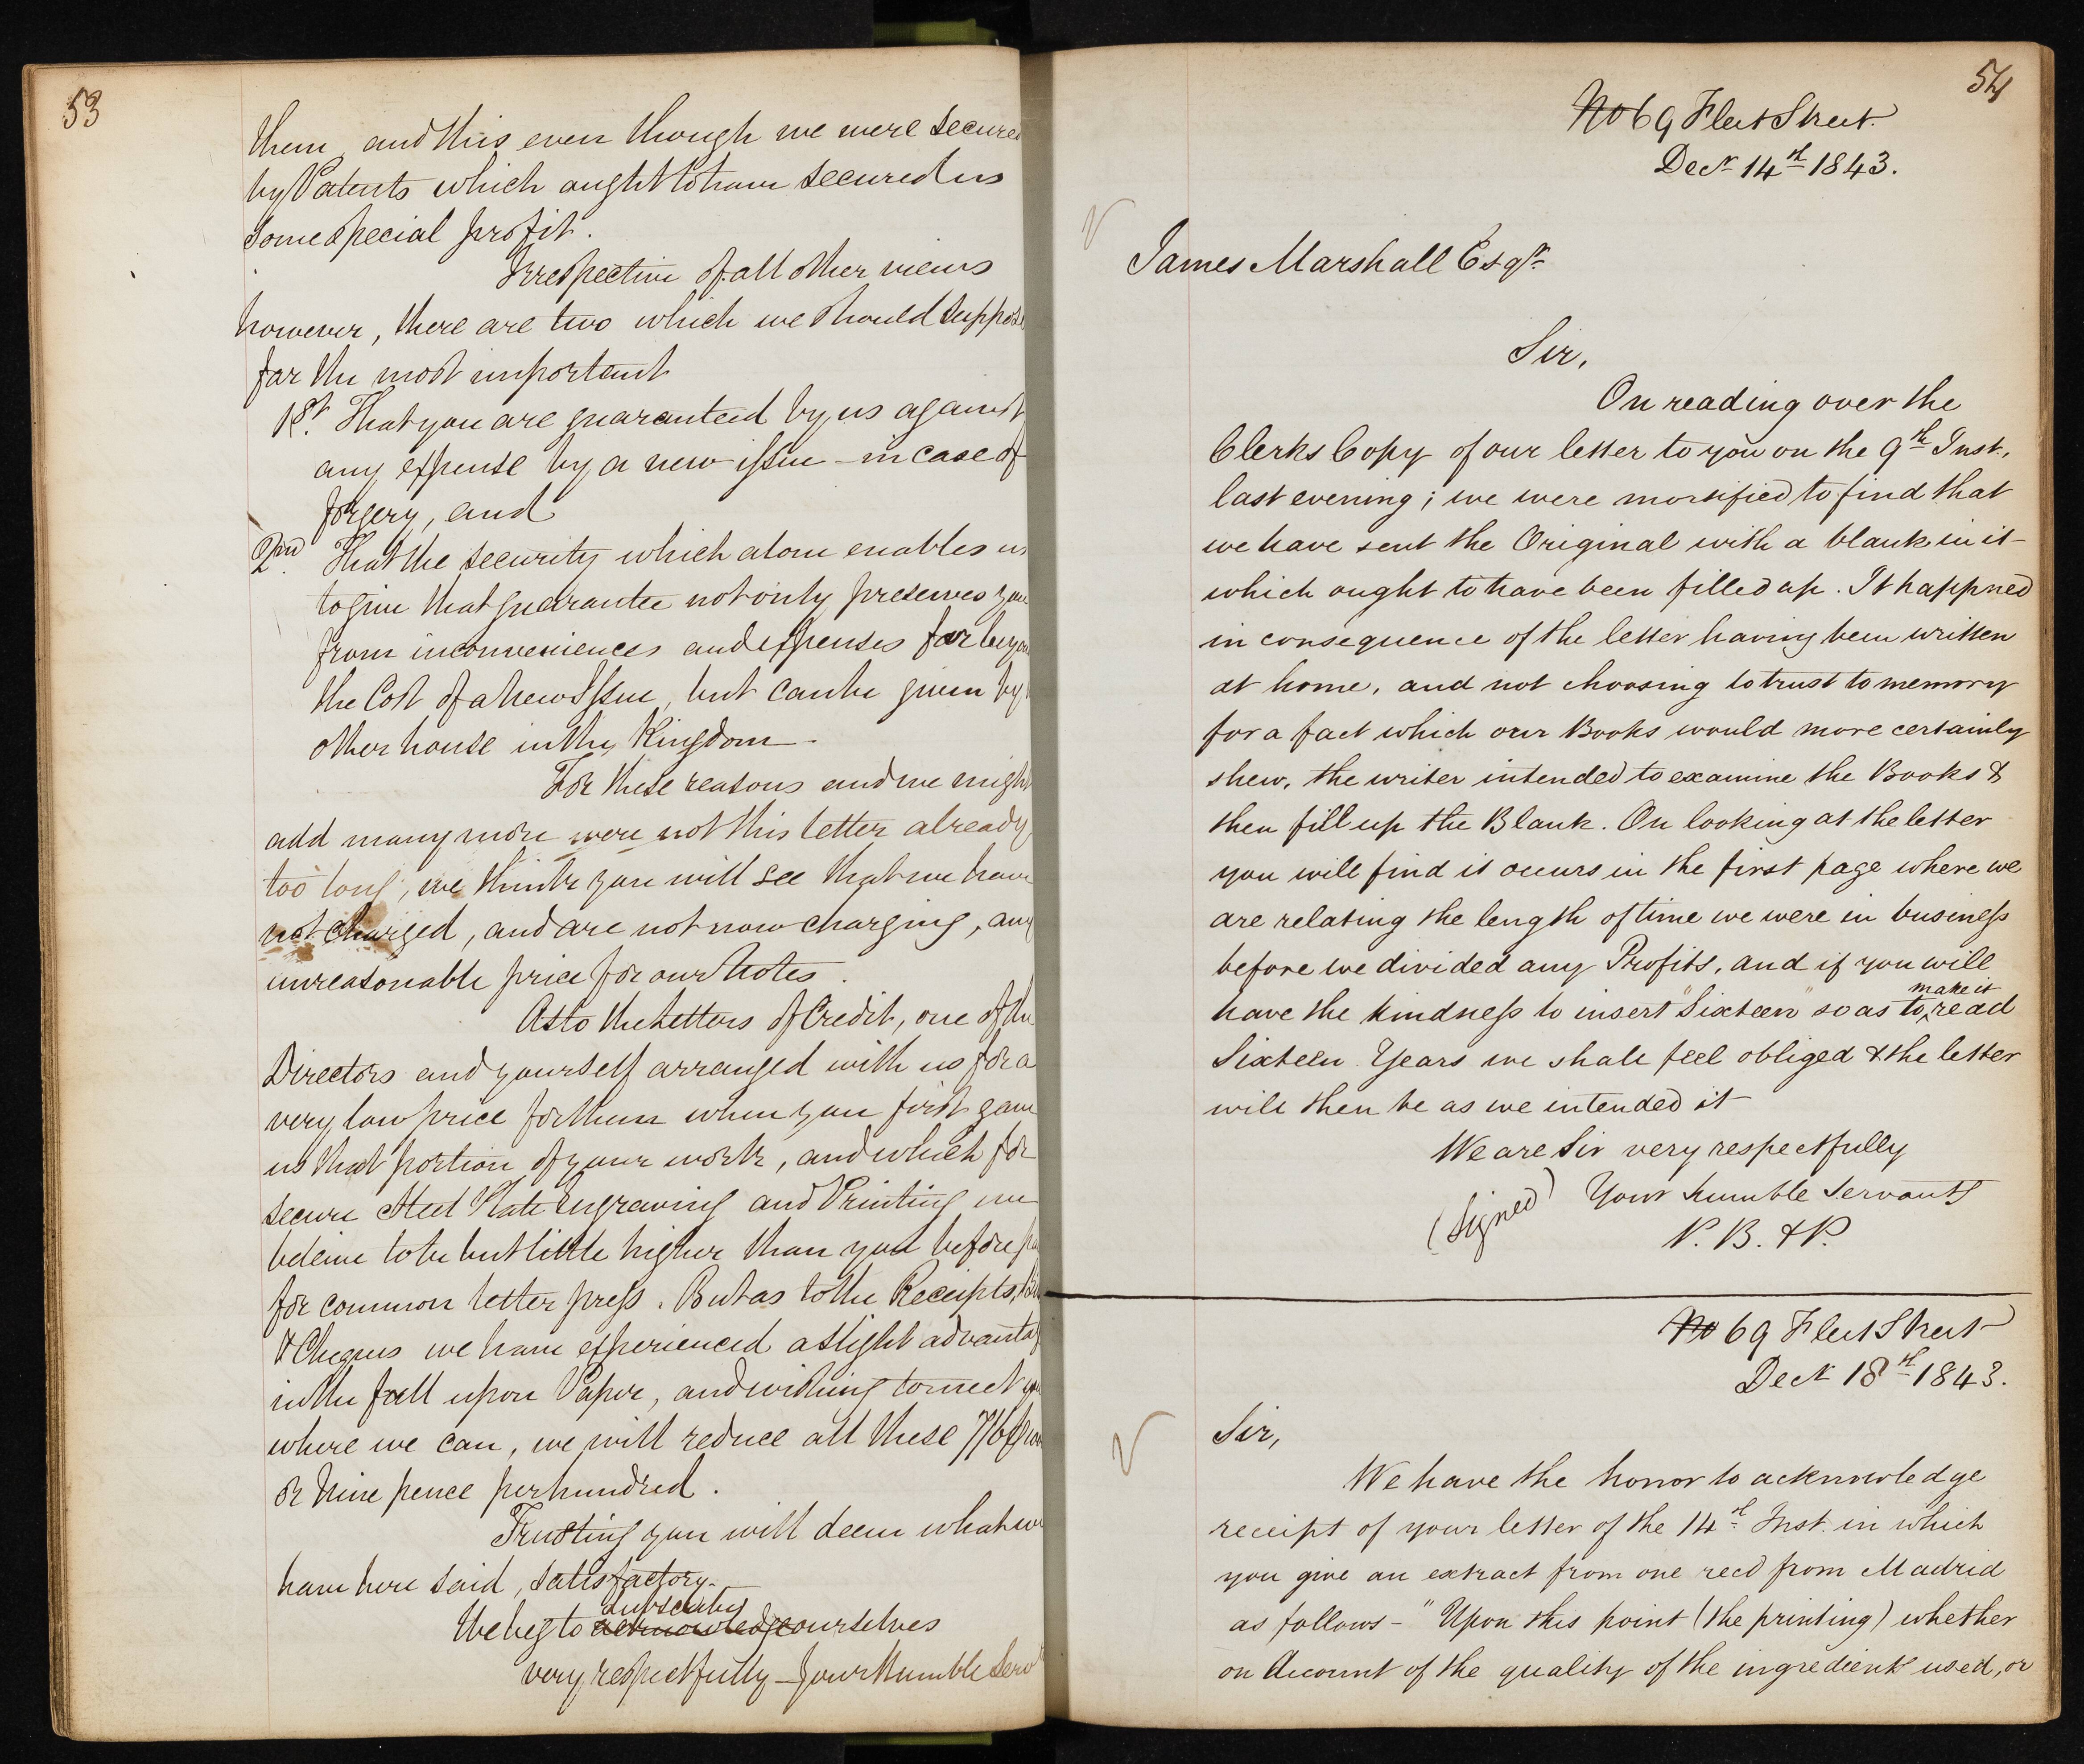 53
them, and this even though we were secured
by Patents which ought to have secured us
some special profit.
Irrespective of all other views
however, there are two which we should suppose
far the most important
1st. That you are guaranteed by us against
any expense by a new issue - in case of
forgery, and
2nd. That the security which alone enables us
to give that guarantee not only preserves you
from inconveniences and expenses far beyon
the Cost of a New Issue, but can be given by
other house in the Kingdom -
For these reasons and we might
add many more were not this letter already
too long, we think you will see that we have
not charged, and are not now charging, any
unreasonable price for our Notes.
As to the Letters of Credit, one of the
Directors and yourself arranged with us for a
very low price for them when you first gave
us that portion of your work, and which for
secure Steel Plate Engraving and Printing we
believe to be but little higher than you before pa
for common letter press. But as to the Receipts,
& Cheques we have experienced a slight advantag
in the fall upon Paper, and wishing to meet you
where we can, we will reduce all these 7/6
or Nine pence per hundred.
Trusting you will deem what we
have here said, satisfactory.
subscribe
We beg to acknowledge ourselves
very respectfully - Your Humble Servt
54
No 69 Fleet Street.
Decr 14th 1843.
James Marshall Esqr.
Sir,
On reading over the
Clerks Copy of our letter to you on the 9th Inst.
last evening; we were mortified to find that
we have sent the Original with a blank in it -
which ought to have been filled up. It happned
in consequence of the letter having been written
at home, and not choosing to trust to memory
for a fact which our Books would more certainly
shew, the writer intended to examine the Books &
then fill up the Blank. On looking at the letter
you will find it occurs in the first page where we
are relating the length of time we were in business
before we divided any Profits, and if you will
make it
have the kindness to insert "Sixteen" so as to read
Sixteen Years we shall feel obliged & the letter
will then be as we intended it -
We are Sir very respectfully
(Signed) Your humble Servants
P. B. & P.
No 69 Fleet Street
Decr 18th 1843.
Sir,
We have the honor to acknowledge
receipt of your letter of the 14th Inst. in which
you give an extract from one recd from Madrid
as follows - "Upon this point (the printing) whether
on Account of the quality of the ingredients used, or